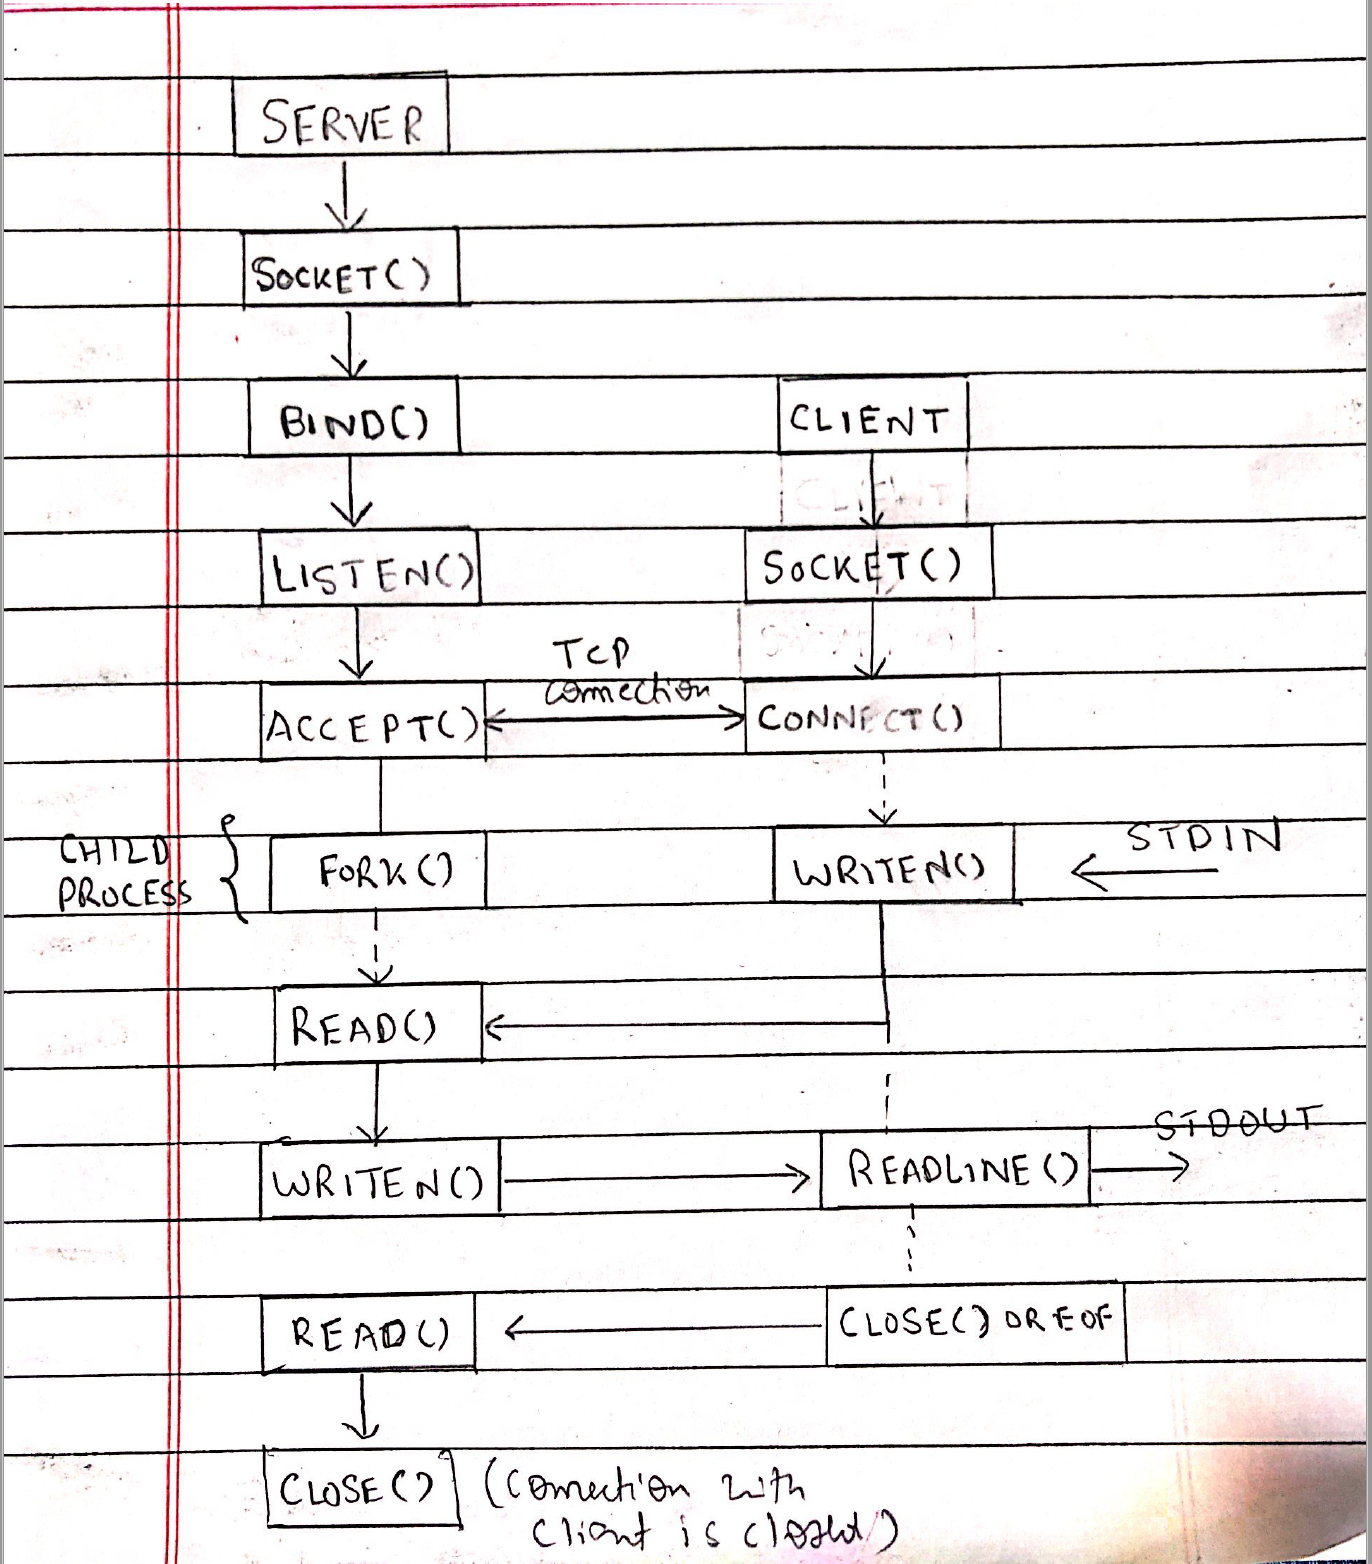 SERVER
SOCKET()
BIND()
CLIENT
CLIENT
LISTEN()
SOCKET()
TCP
connection
ACCEPT()
CONNECT()
CHILD
PROCESS
FORK()
WRITEN()
STDIN
READ()
STDOUT
WRITEN()
READLINE()
READ()
CLOSE() OR EOF
CLOSE() (connection with
client is closed)